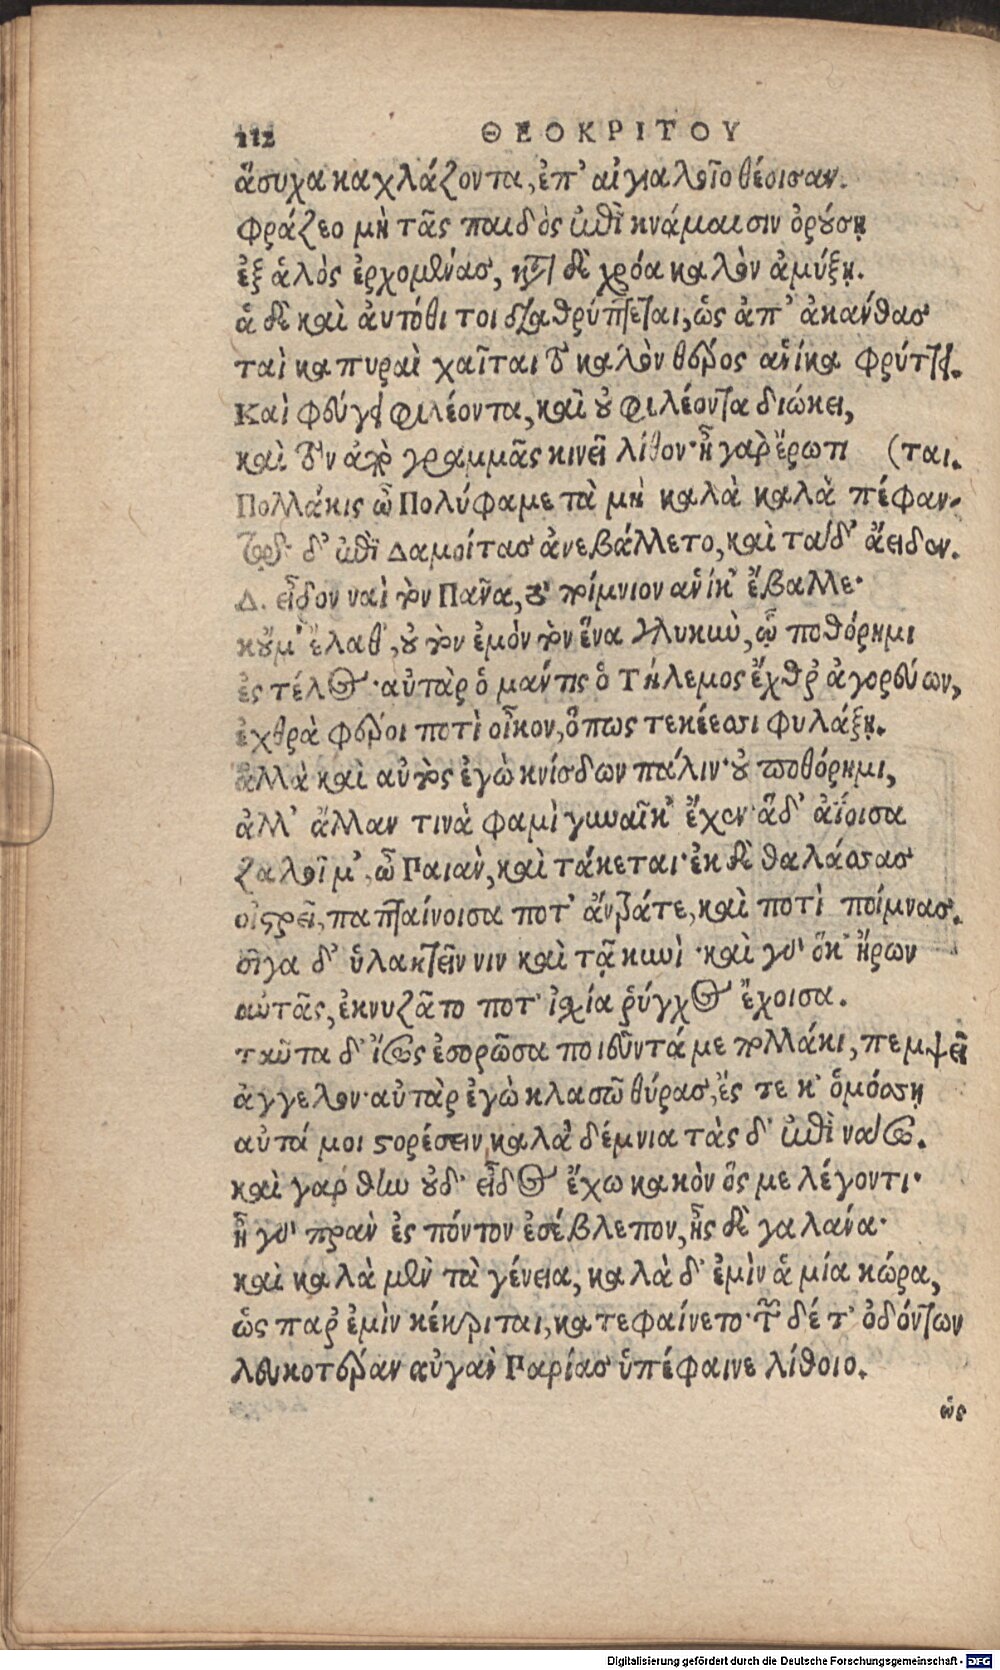 112 ΘΕΟΚΡΙΤΟΥ
ἅσυχα καχλάζοντα, ἐπ' αἰγιαλοῖο θέοισαν.
Φράζεο μὴ τᾶς παιδὸς ἐπὶ κνάμαισιν ὀρούσῃ
ἐξ ἁλὸς ἐρχομένας, κατὰ δὲ χρόα καλὸν ἀμύξῃ.
ἁ δὲ καὶ αὐτόθι τοι διαθρύπτεται, ὡς ἀπ' ἀκάνθας
ταὶ καπυραὶ χαῖται τὸ καλὸν θέρος ἁνίκα φρύττει.
Καὶ φεύγει φιλέοντα, καὶ οὐ φιλέοντα διώκει,
καὶ τὸν ἀπὸ γραμμᾶς κινεῖ λίθον· ἦ γὰρ ἔρωτι (ται.
Πολλάκις ὦ Πολύφαμε τὰ μὴ καλὰ καλὰ πέφαν-
τῷ δ' ἐπὶ Δαμοίτας ἀνεβάλλετο, καὶ τάδ' ἄειδεν.
Δ. εἶδον ναὶ τὸν Πᾶνα, τὸ ποίμνιον ἁνίκ' ἔβαλλε·
κοὔμ' ἔλαθ', οὐ τὸν ἐμὸν τὸν ἕνα γλυκὺ, ᾧ ποθόρημι
ἐς τέλος· αὐτὰρ ὁ μάντις ὁ Τήλεμος ἔχθρ' ἀγορεύων,
ἐχθρὰ φέροι ποτὶ οἶκον, ὅπως τεκέεσσι φυλάξῃ.
ἀλλὰ καὶ αὐτὸς ἐγὼ κνίσδων πάλιν· οὐ ποθόρημι,
ἀλλ' ἄλλαν τινὰ φαμὶ γυναῖκ' ἔχεν· ἅδ' ἀΐοισα
ζαλοῖ μ', ὦ Παιὰν, καὶ τάκεται· ἐκ δὲ θαλάσσας
οἰστρεῖ, παπταίνοισα ποτ' ἄντρά τε, καὶ ποτὶ ποίμνας.
σῖγα δ' ὑλακτεῖν νιν καὶ τᾷ κυνὶ· καὶ γὰρ ὅκ' ἤρων
αὐτᾶς, ἐκνυζᾶτο ποτ' ἰσχία ῥύγχος ἔχοισα.
ταῦτα δ' ἴσως ἐσορῶσα ποιεῦντά με πολλάκι, πεμψεῖ
ἄγγελον· αὐτὰρ ἐγὼ κλασῶ θύρας, ἔς τε κ' ὁμόσσῃ
αὐτά μοι στορέσειν καλὰ δέμνια τᾶς δ' ἐπὶ νάσω.
καὶ γὰρ θὴν οὐδ' εἶδος ἔχω κακὸν ὥς με λέγοντι·
ἦ γὰρ πρὰν ἐς πόντον ἐσέβλεπον, ἦς δὲ γαλάνα·
καὶ καλὰ μὲν τὰ γένεια, καλὰ δ' ἐμὶν ἁ μία κώρα,
ὡς παρ' ἐμὶν κέκριται, κατεφαίνετο· τῶν δέ τ' ὀδόντων
λευκοτέραν αὐγὰν Παρίας ὑπέφαινε λίθοιο.
ὡς
Digitalisierung gefördert durch die Deutsche Forschungsgemeinschaft - DFG